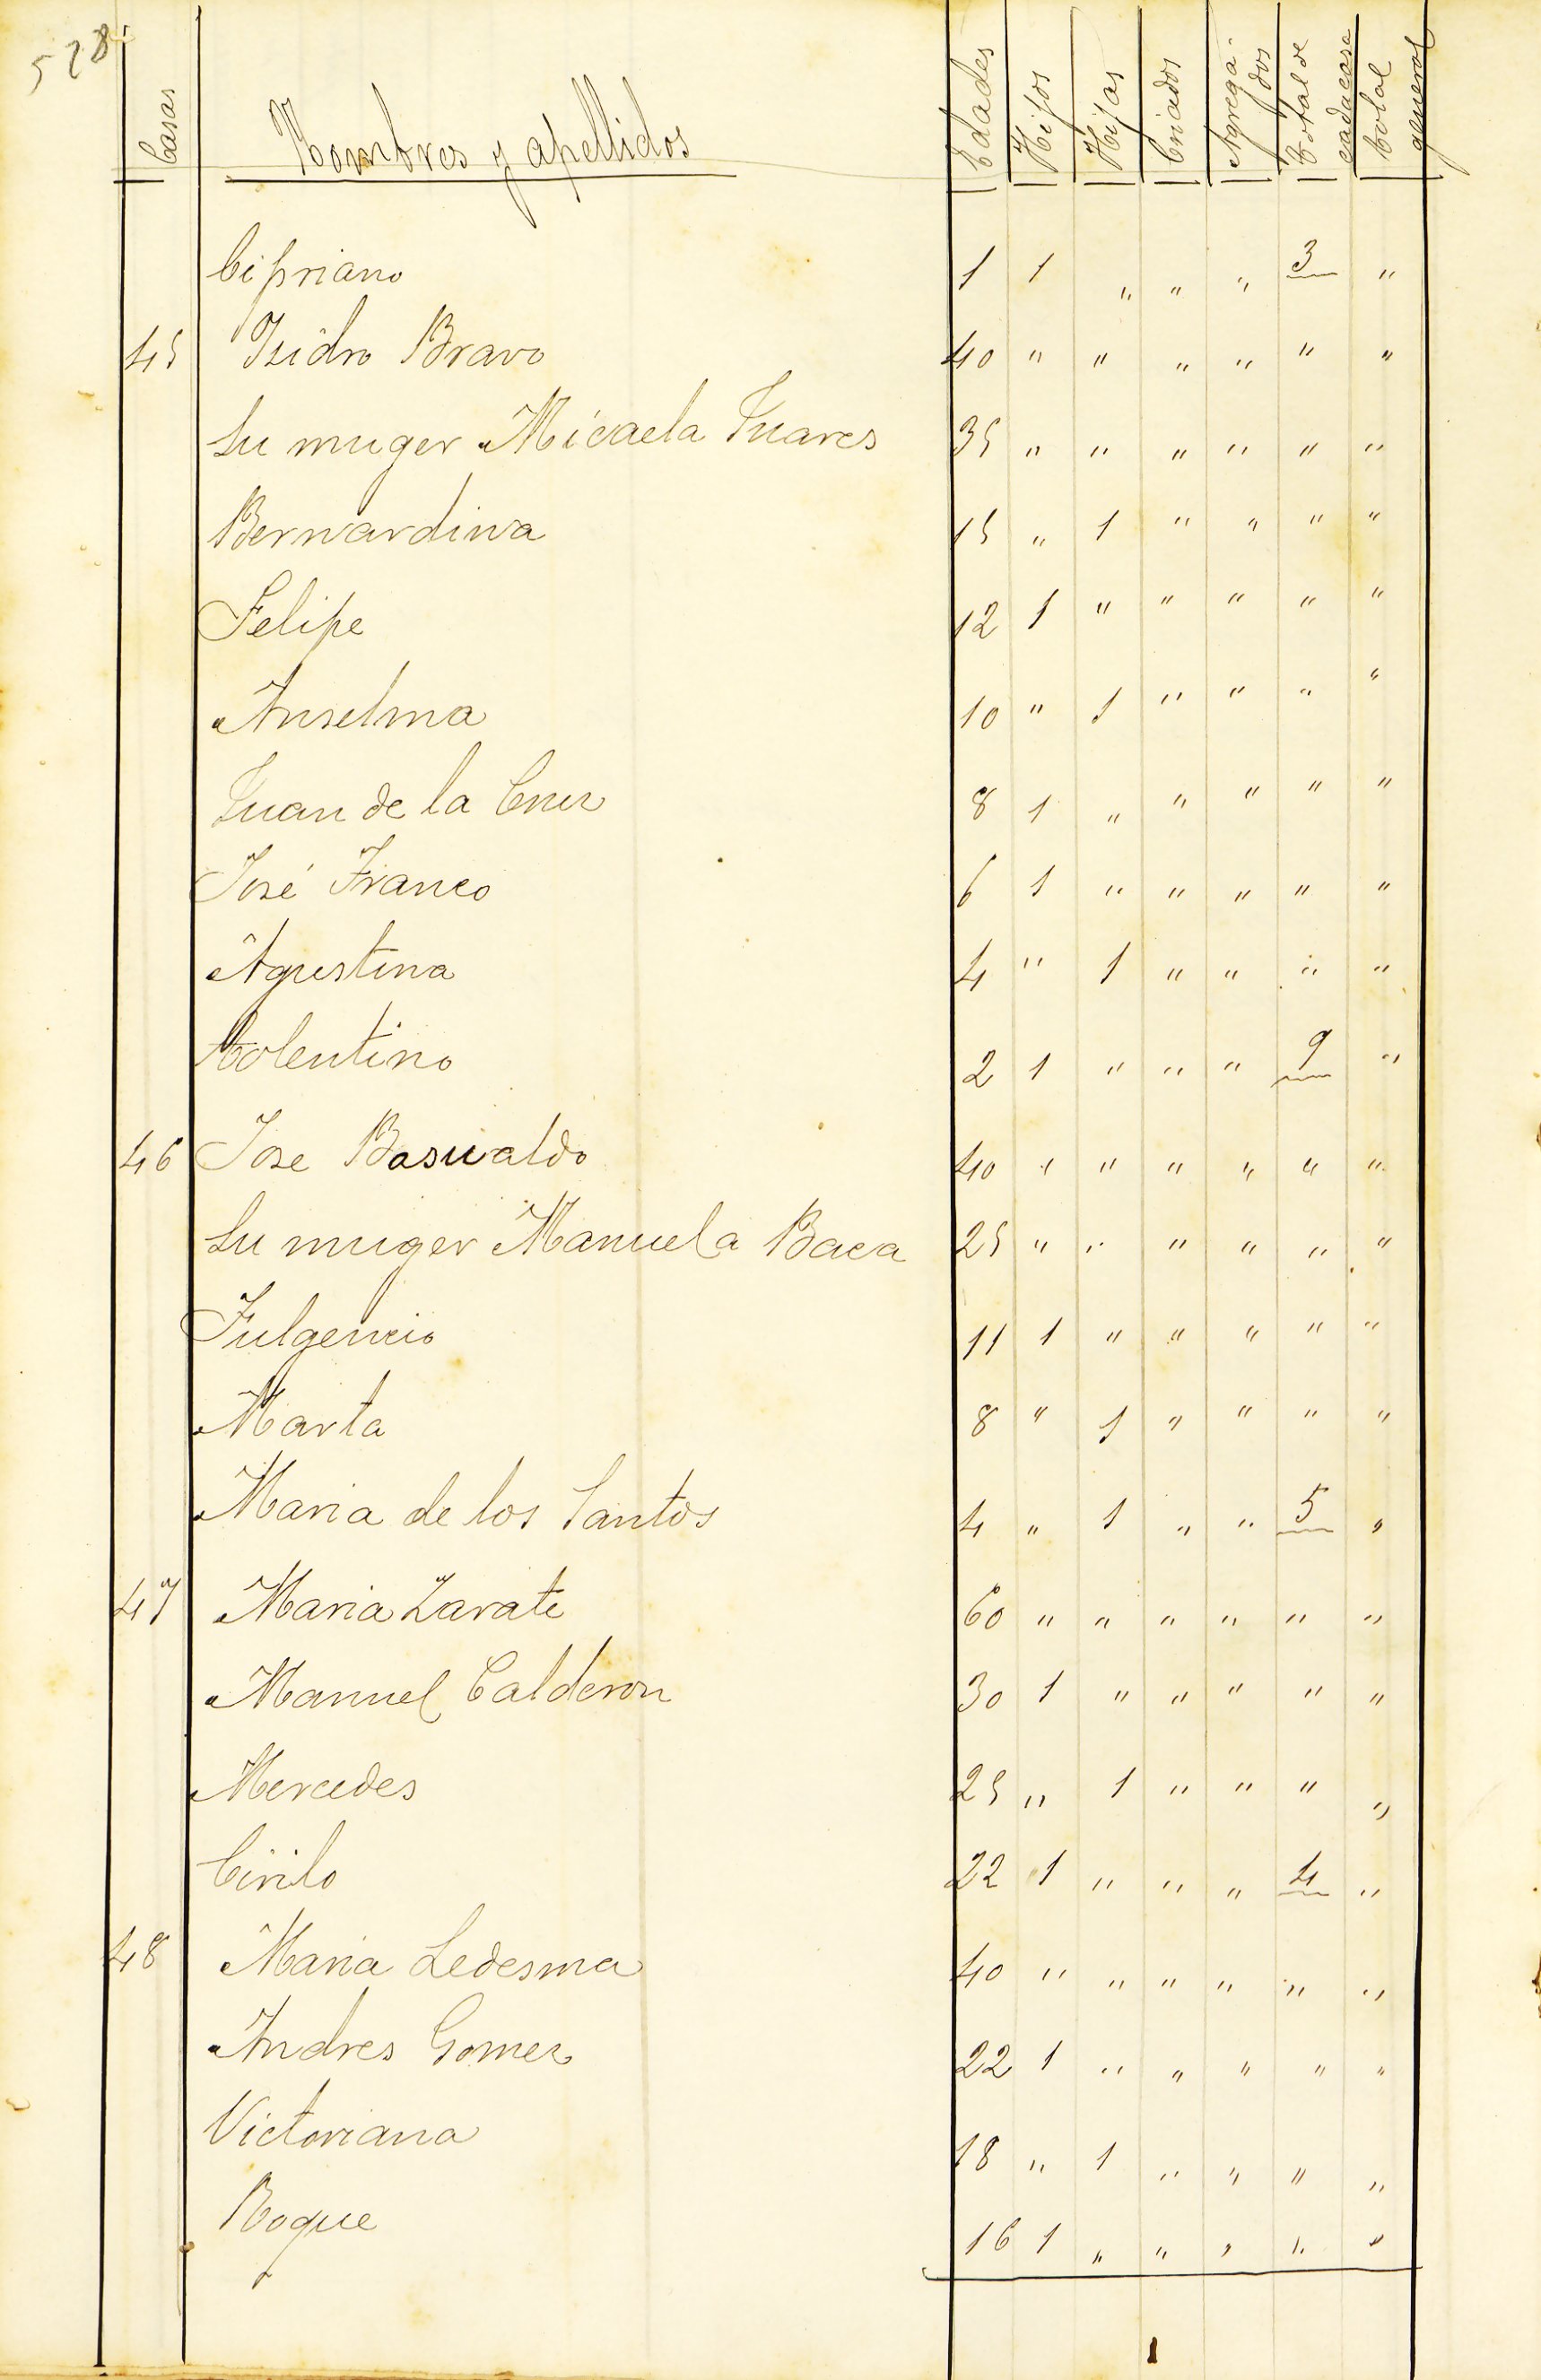 528
Casas Nombres y apellidos Edades Hijos Hijas Criados Agregados Total de cada casa Total general
Cipriano 1 1 " " " 3 "
45 Isidro Bravo 40 " " " " " "
Su muger Micaela Juares 35 " " " " " "
Bernardina 15 " 1 " " " "
Felipe 12 1 " " " " "
Anselma 10 " 1 " " " "
Juan de la Cruz 8 1 " " " " "
José Franco 6 1 " " " " "
Agustina 4 " 1 " " " "
Tolentino 2 1 " " " 9 "
46 Jose Basualdo 40 " " " " " "
Su muger Manuela Baca 25 " " " " " "
Fulgencio 11 1 " " " " "
Marta 8 " 1 " " " "
Maria de los Santos 4 " 1 " " 5 "
47 Maria Zarate 60 " " " " " "
Manuel Calderon 30 1 " " " " "
Mercedes 25 " 1 " " " "
Cirilo 22 1 " " " 4 "
48 Maria Ledesma 40 " " " " " "
Andres Gomez 22 1 " " " " "
Victoriana 18 " 1 " " " "
Roque 16 1 " " " " "
1